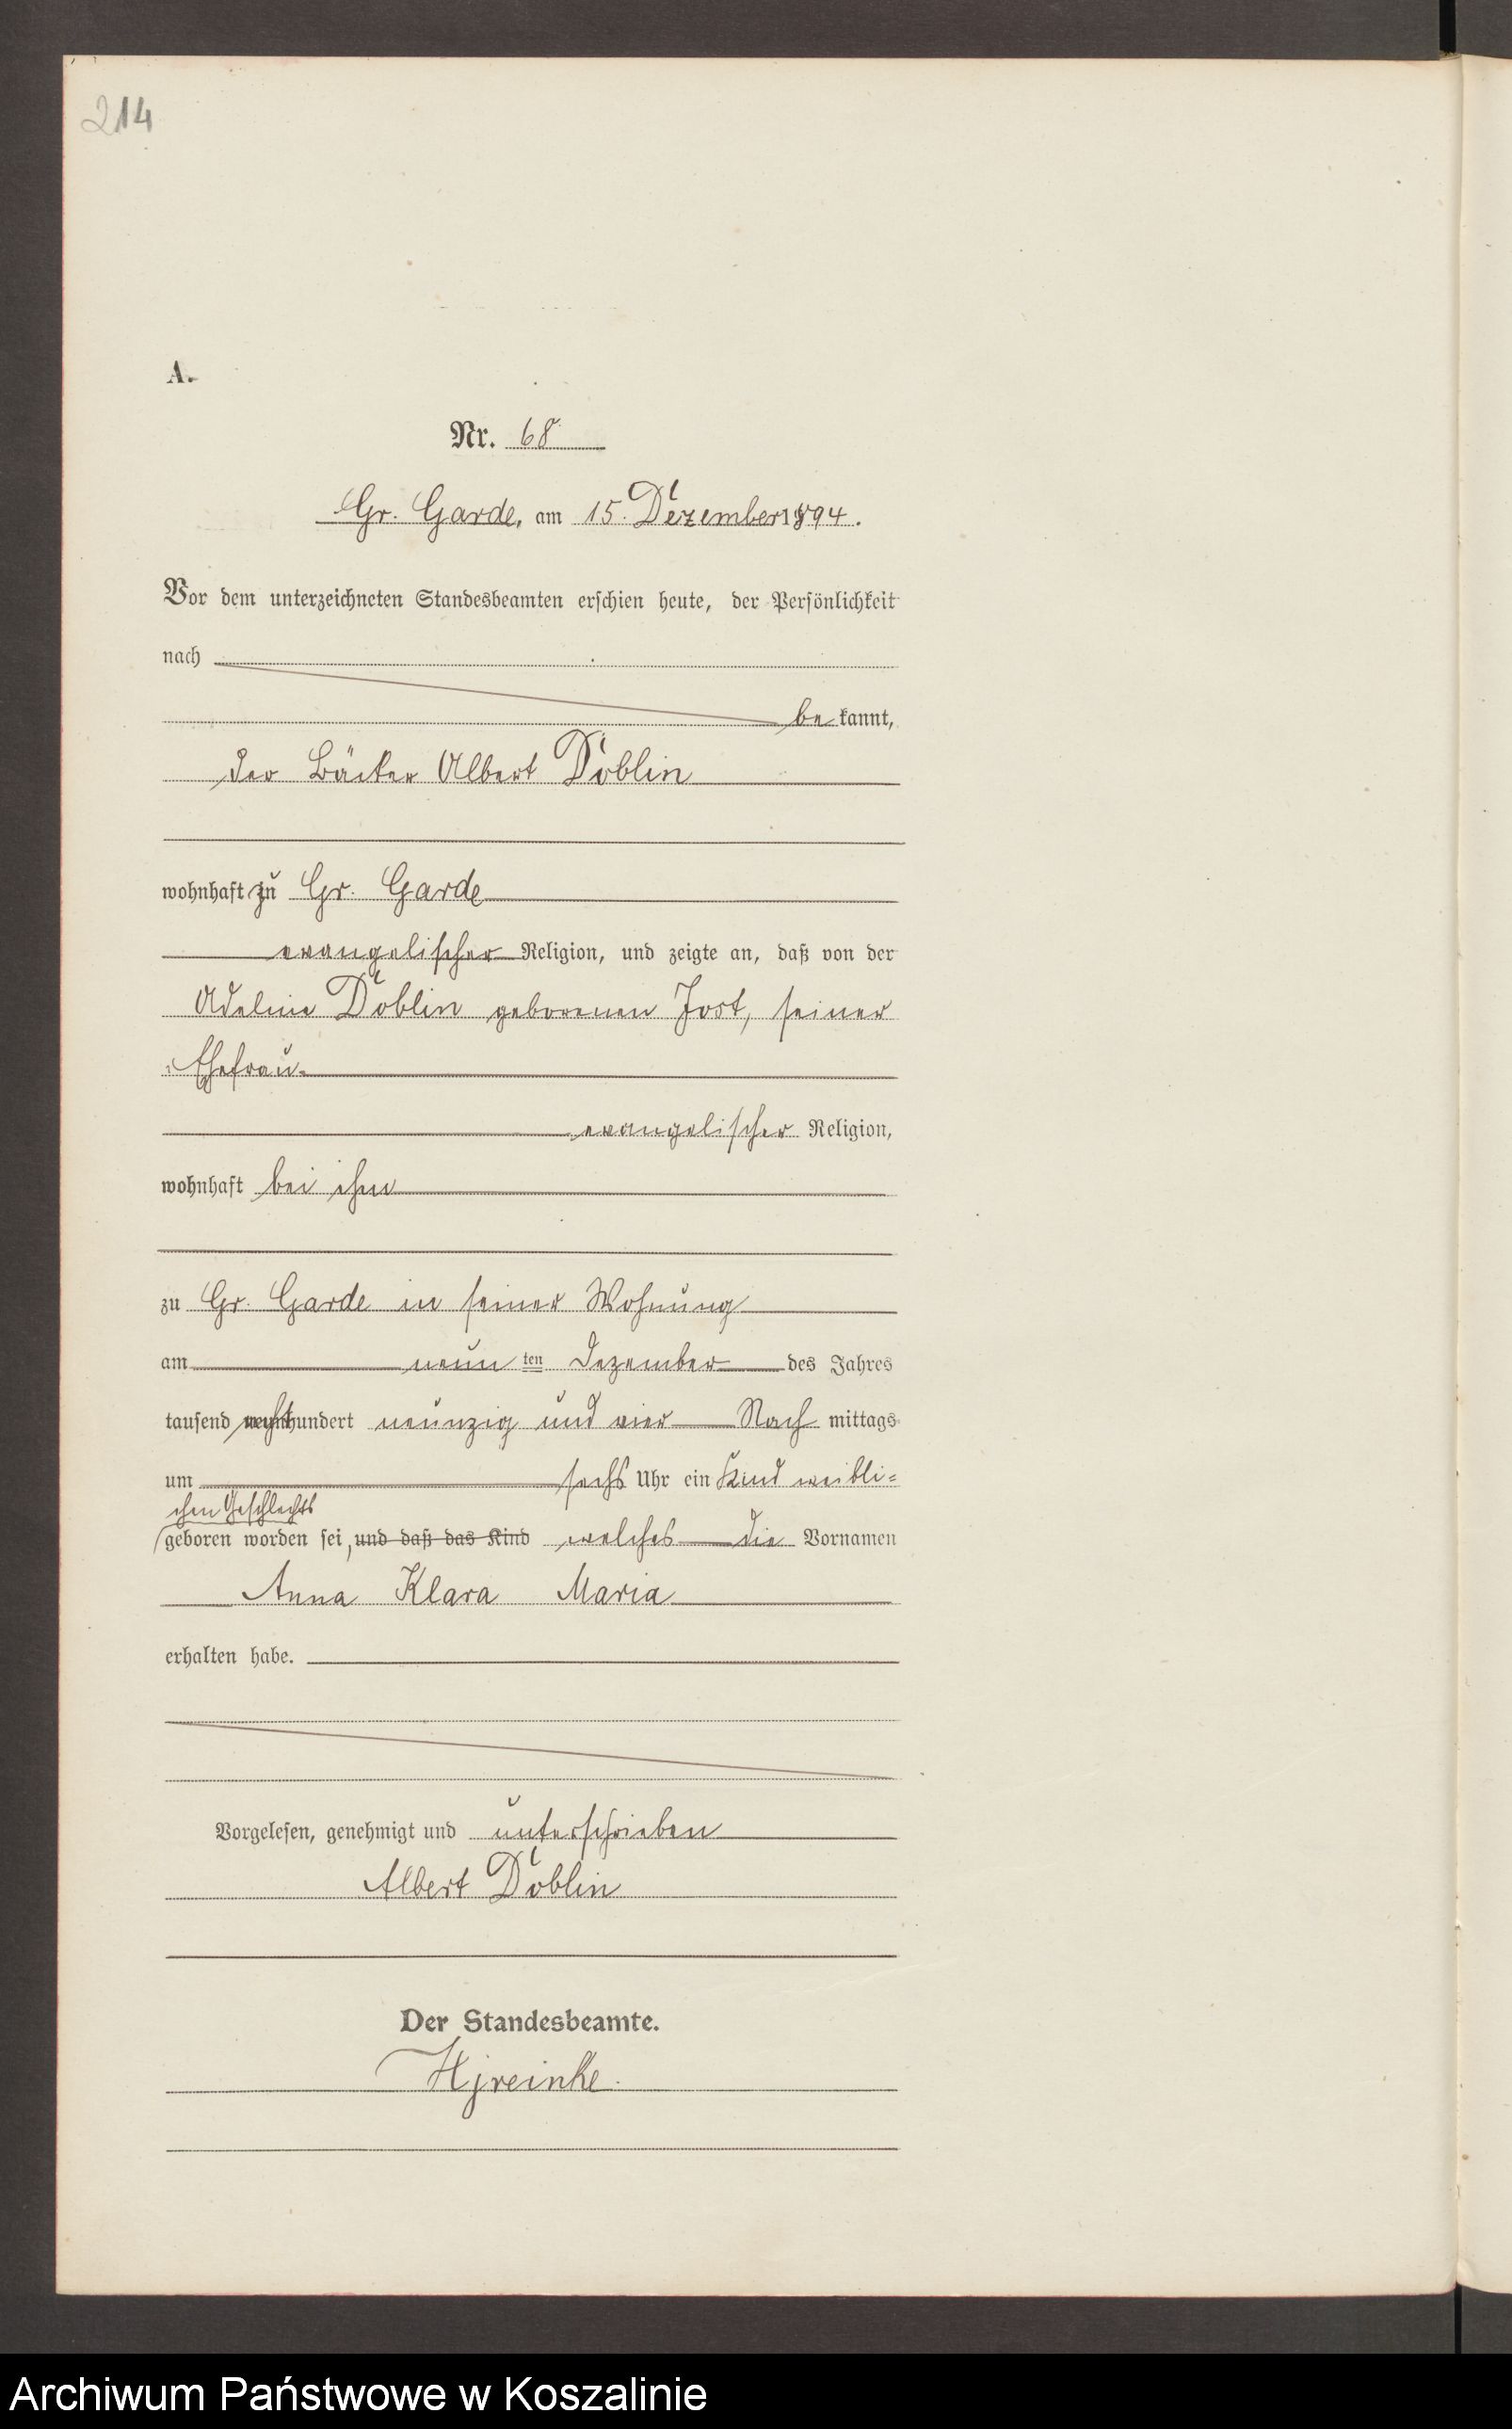 214
A.
Nr. 68
Gr. Garde, am 15. Dezember 1894.
Vor dem unterzeichneten Standesbeamten erschien heute, der Persönlichkeit
nach
be kannt,
der Bäcker Albert Döblin
wohnhaft zu Gr. Garde
evangelischer Religion, und zeigte an, daß von der
Adeline Döblin geborenen Jost, seiner
Ehefrau
evangelischer Religion,
wohnhaft bei ihm
zu Gr. Garde in seiner Wohnung
am neun ten Dezember des Jahres
tausend achthundert neunzig und vier Nach mittags
um sechs Uhr ein Kind weibli=
chen Geschlechts
geboren worden sei, und daß das Kind welches die Vornamen
Anna Klara Maria
erhalten habe.
Vorgelesen, genehmigt und unterschrieben
Albert Döblin
Der Standesbeamte.
HJreinke.
Archiwum Państwowe w Koszalinie